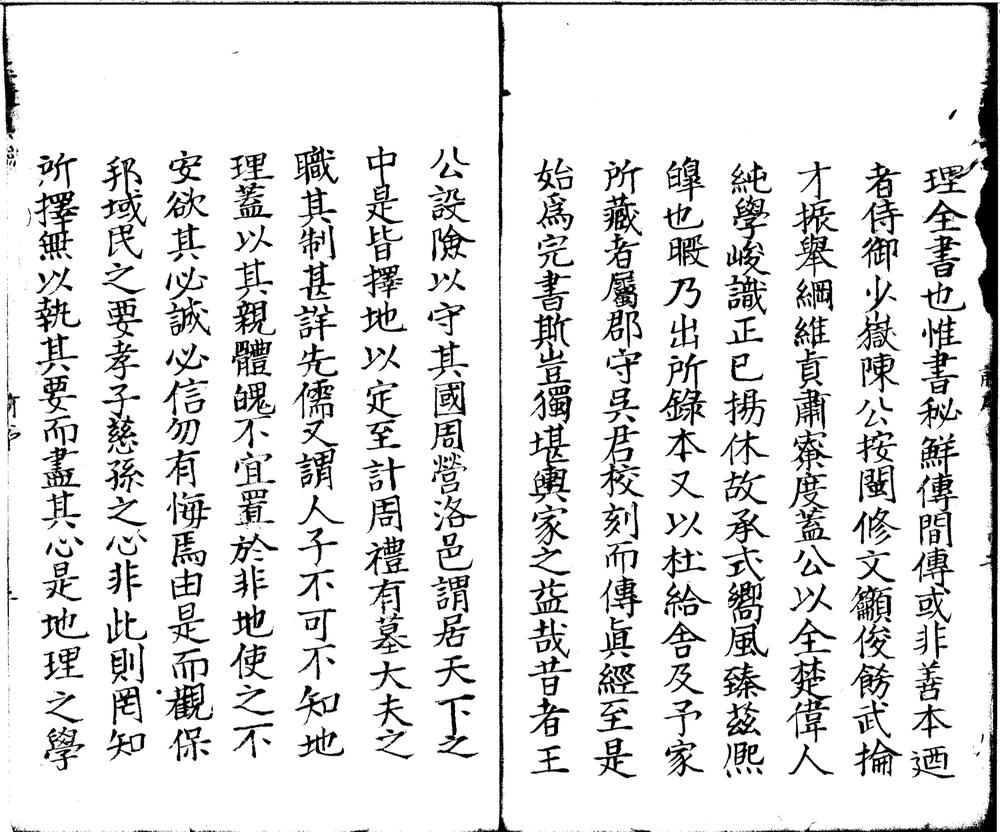 理全書也惟書秘鮮傳間傳或非善本迺
者侍御少嶽陳公按閩修文籲俊飭武掄
才振舉綱維貞肅寮度蓋公以全楚偉人
純學峻識正已揚休故承式嚮風臻茲熈
皥也暇乃出所錄本又以杜給舍及予家
所藏者屬郡守吳君校刻而傳眞經至是
始爲完書斯豈獨堪輿家之益哉昔者王
公設險以守其國周營洛邑謂居天下之
中是皆擇地以定至計周禮有墓大夫之
職其制甚詳先儒又謂人子不可不知地
理蓋以其親體魄不宜置於非地使之不
安欲其必誠必信勿有悔焉由是而觀保
邦域民之要孝子慈孫之心非此則罔知
所擇無以執其要而盡其心是地理之學